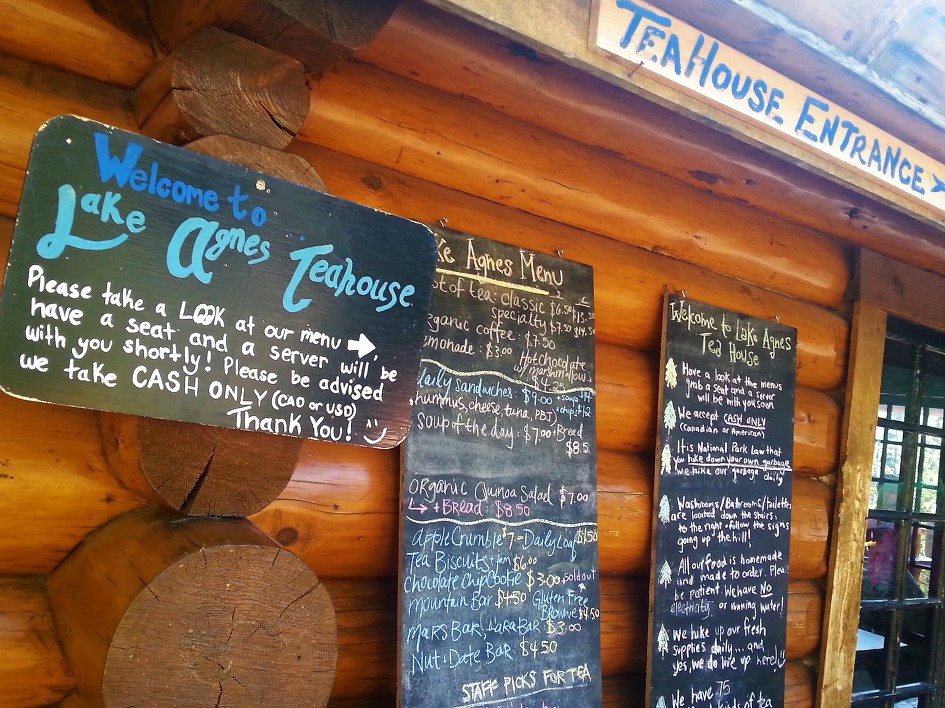 TEAHOUSE ENTRANCE
Welcome to
Lake Agnes Teahouse
Please take a LOOK at our menu
have a seat and a server will be
with you shortly! Please be advised
we take CASH ONLY (CAD or USD)
Thank You!
Agnes Menu
of tea: classic $6.50
specialty $7.50
coffee: $7.50
$3.00
Hot chocolate
w/ marshmallows
$4.25
Daily sandwiches: $9.00
hummus, cheese, tuna, PBJ
Soup of the day: $7.00 +Bread
$8.5
Organic Quinoa Salad $7.00
+ Bread $8.50
Apple Crumble $7 - Daily Loaf
Tea Biscuits + jam $6.00
Chocolate Chip Cookie $3.00, sold out
Mountain Bar $4.50 Gluten Free
Brownie $4.50
Mars Bar, Bar $3.00
Nut + Date Bar $4.50
STAFF PICKS FOR TEA
Welcome to Lake Agnes
Tea House
Have a look at the menus
grab a seat and a server
will be with you soon
We accept CASH ONLY
(Canadian or American)
It is National Park Law that
you hike down your own garbage
we hike our garbage daily
Washrooms/Bathrooms/toilettes
are located down the stairs,
to the right - follow the signs
going up the hill!
All our food is homemade
and made to order.
be patient. We have NO
electricity or running water!
We hike up our fresh
supplies daily... and
yes, we do live up here!
We have 75
kinds of tea